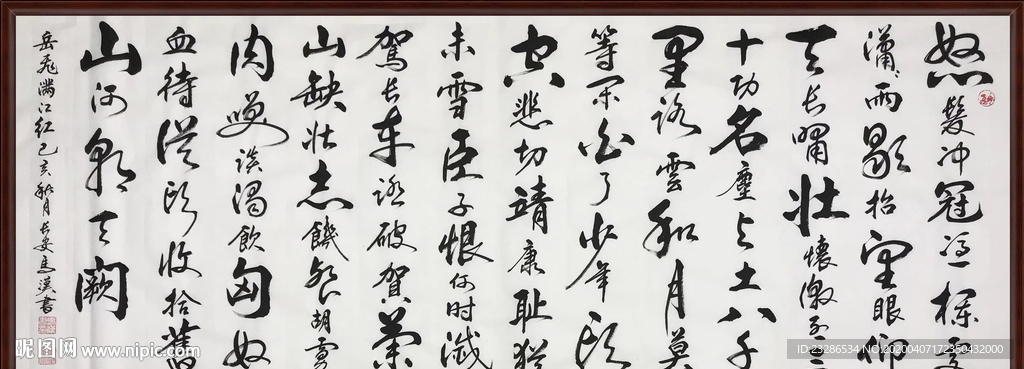 怒髮冲冠凭栏處
潇雨歇抬望眼仰
天长啸壮怀激烈三
十功名塵与土八千
里路雲和月莫
等闲白了少年头
空悲切靖康耻犹
未雪臣子恨何时滅
驾长车踏破贺蘭
山缺壮志饑餐胡虏
肉笑谈渴飲匈奴
血待從头收拾舊
山河朝天阙
岳飛满江红己亥秋月长安馬漢書
昵图网 www.nipic.com
ID:23286534 NO:20200407172350432000